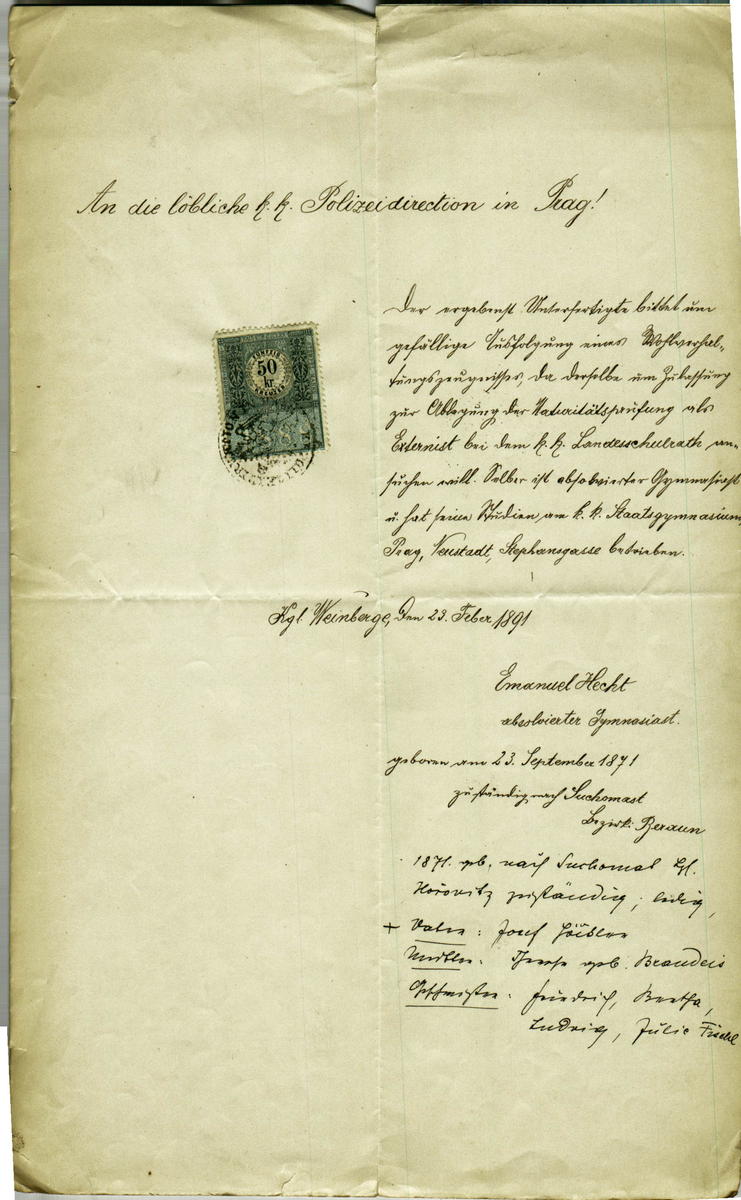 An die löbliche k. k. Polizeidirection in Prag!
50
kr
Der ergebenst Unterfertigte bittet um
gefällige Ausfolgung eines Wohlverhal-
tungszeugnisses, da derselbe um Zulassung
zur Ablegung der Maturitätsprüfung als
Externist bei dem k. k. Landesschulrath an-
suchen will. Selber ist absolvierter Gymnasiast
u. hat seine Studien am k. k. Staatsgymnasium,
Prag, Neustadt, Stephansgasse betrieben.
Kgl. Weinberge, den 23. Feber 1891
Emanuel Hecht
absolvierter Gymnasiast.
geboren am 23. September 1871
zuständig nach Suchomast
Bezirk: Beraun
1871. geb. nach Suchomast
Horovitz zuständig; ledig,
+ Vater: Josef
Mutter: Therese geb. Brandeis
Geschwister: Friedrich, Bertha,
Ludwig, Julie Fischl